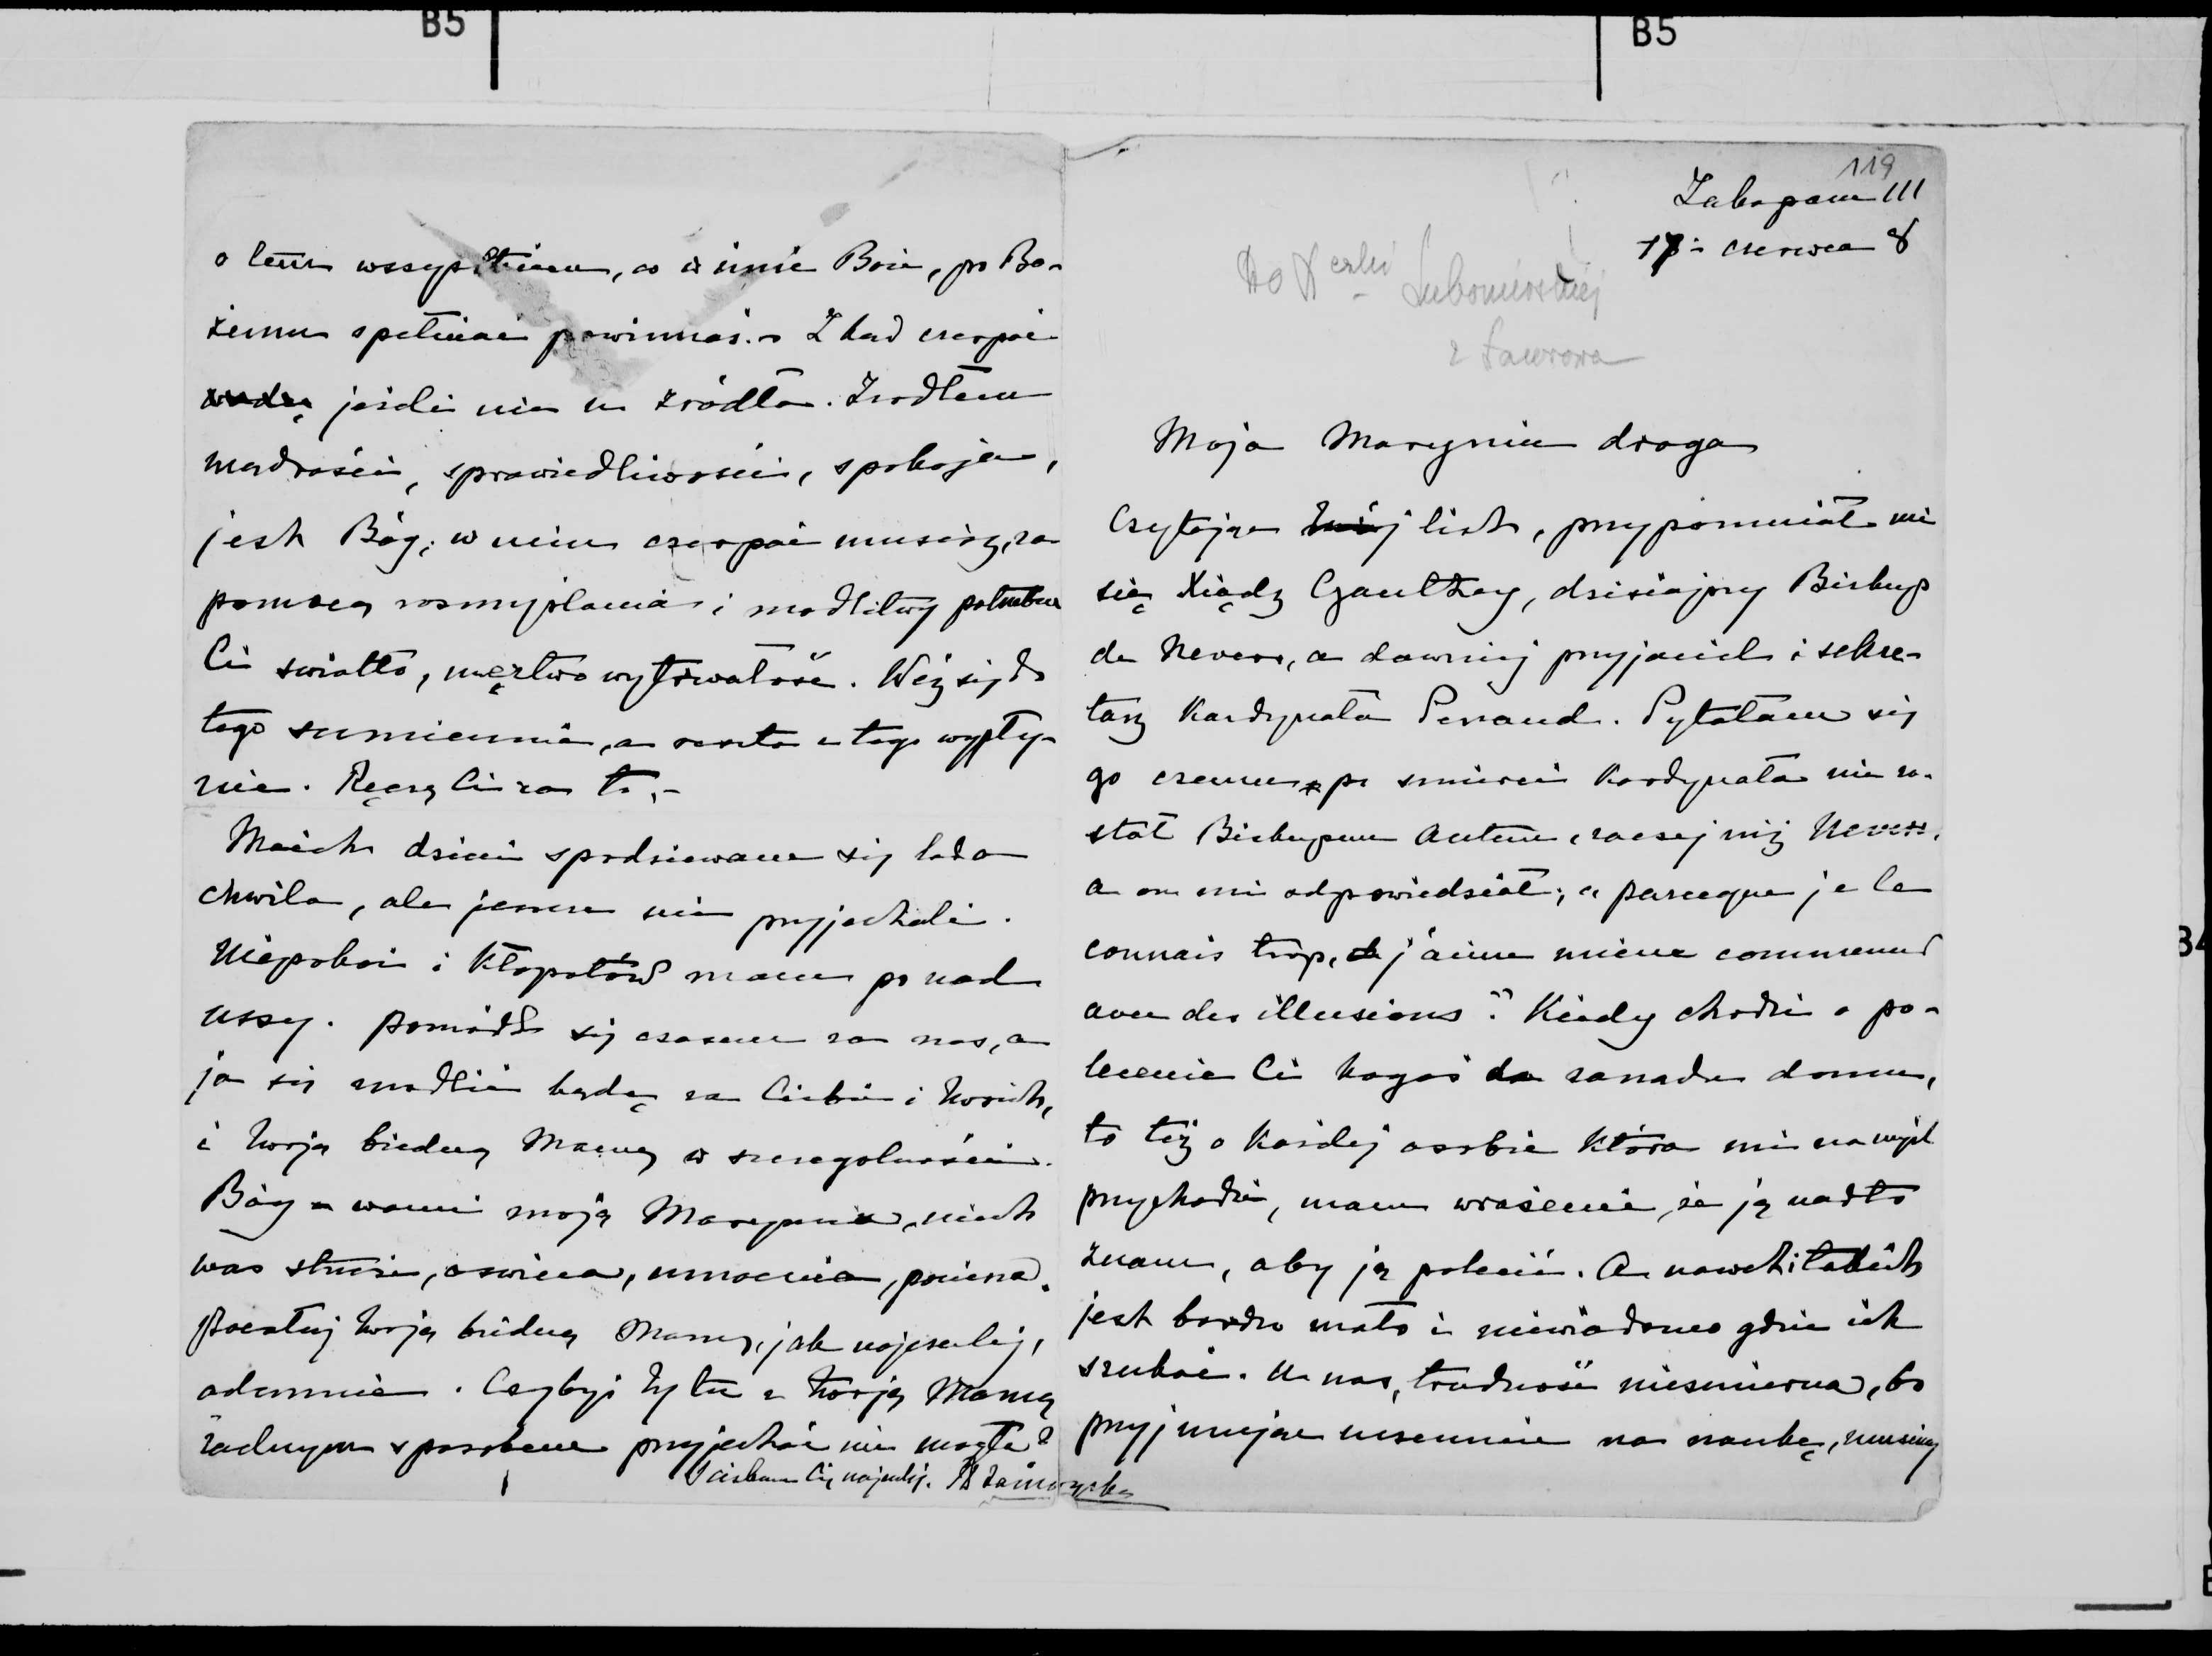 B5
B5
o tem wszystkiem, co w imie Boże, po Bo-
żemu spełniać powinnaś. Zkad czerpać
wodę jeżeli nie u źródła. Zrodłem
madrości, sprawiedliwości, spokoju,
jest Bóg; w nim czerpać musisz, za
pomocą rozmyślania i modlitwy potrzebne
Ci swiatło, męztwo wytrwałość. Weź się do
tego sumiennie, a reszta z tego wypły-
nie. Ręczę Ci za to.-
Moich dzieci spodziewam się lada
chwila, ale jeszcze nie przyjechali.
Niepokoi i kłopotów mam po nad
uszy. Pomódl się czasem za nas, a
ja się modlić będę za Ciebie i twoich,
i twoją biedną Mamę w szczegolności.
Bóg z wami moja Maryniu, niech
was strzeże, oswieca, umocnia, pociesza.
Pocałuj twoją biedną Mamę, jak najczulej,
odemnie. Czybyś Ty tu z twoją Mamą
żadnym sposobem przyjechać nie mogła?
Sciskam Cię najczulej. JZamoyska
119
Zakopane III
17 czerwca 8
Do Xczki Lubomirskiej
z Ławrowa
Moja Maryniu droga
Czytając twój list, przypomniał mi
się Xiądz Gauthey, dzisiajszy Biskup
de Nevers, a dawniej przyjaciel i sekre-
tarz Kardynała Perraud. Pytałam się
go czemu po smierci Kardynała nie zo-
stał Biskupem Autun, raczej niż Nevers.
a on mi odpowiedział; "parceque je le
connais trop, j'aime mieux commencer
avec des illusions". Kiedy chodzi o po-
lecenie Ci kogoś do zarządu domu,
to też o każdej osobie która mi na myśl
przychodzi, mam wrażenie, że ją nadto
znam, aby ją polecić. A nawet i takich
jest bardzo mało i niewiadomo gdzie ich
szukać. U nas, trudność niesmierna, bo
przyjmując uczennice na naukę, musimy